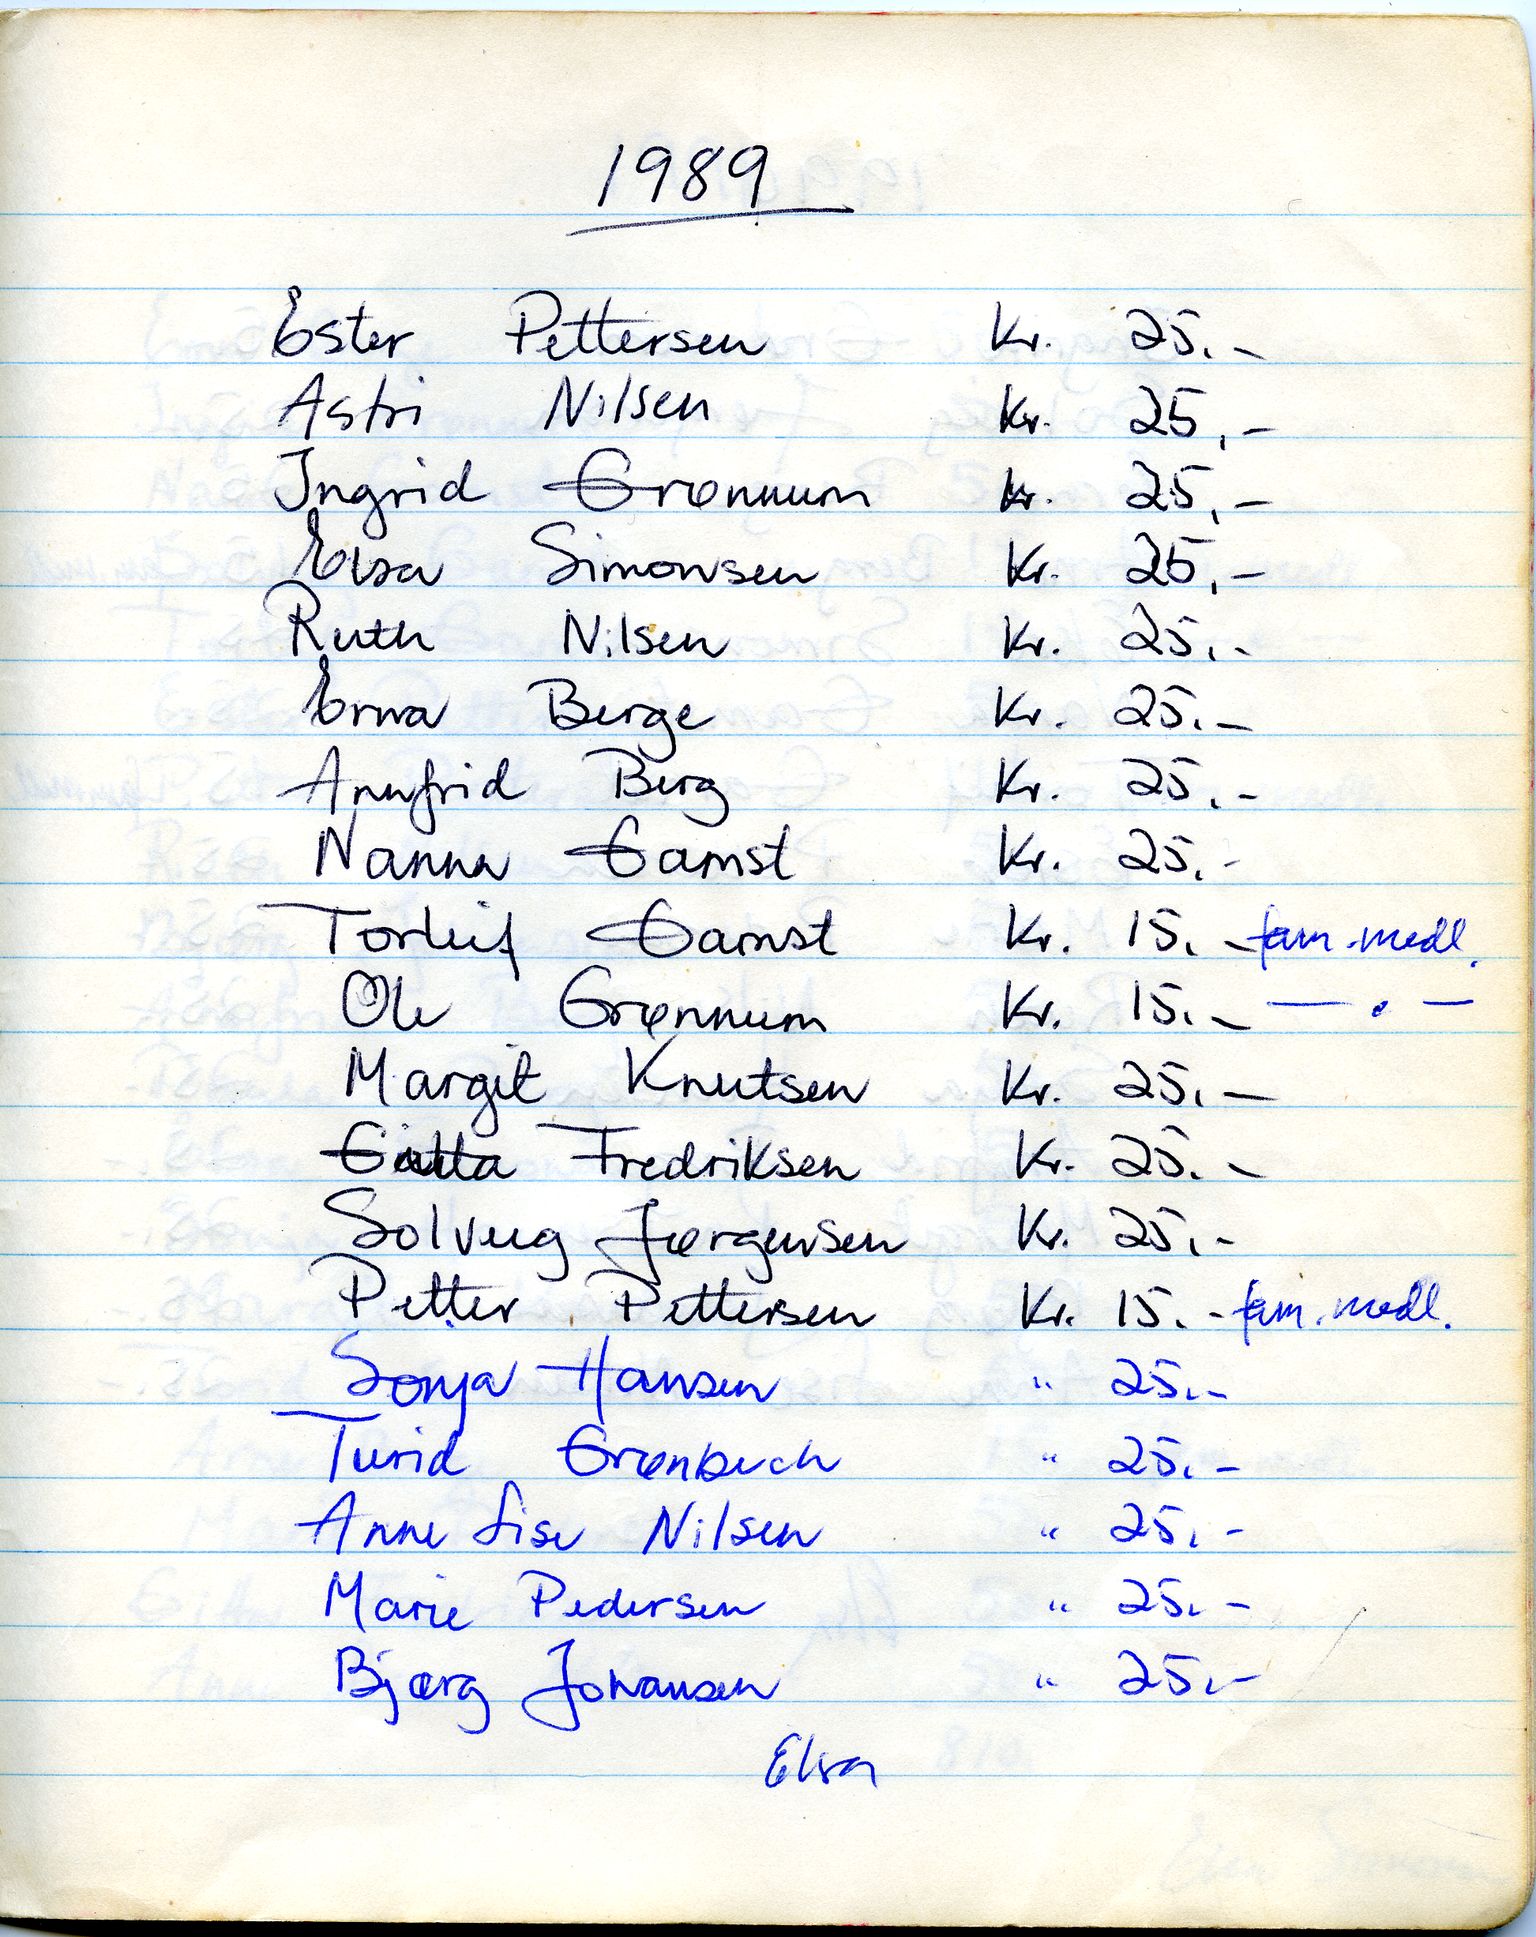 1989
Ester Pettersen Kr. 25.-
Astri Nilsen Kr. 25,-
Ingrid Grønnum Kr. 25,-
Elsa Simonsen Kr. 25,-
Ruth Nilsen Kr. 25.-
Erna Berge Kr. 25.-
Annfrid Berg Kr. 25.-
Nanna Gamst Kr. 25.-
Torleif Gamst Kr. 15.- fam.medl.
Ole Grønnum Kr. 15.- — . —
Margit Knutsen Kr. 25.-
Fredriksen Kr. 25.-
Solveig Jørgensen Kr. 25.-
Petter Pettersen Kr. 15.- fam.medl.
Sonja Hansen " 25.-
Turid Grønbech " 25.-
Anne Lise Nilsen " 25.-
Marie Pedersen " 25.-
Bjørg Johansen " 25.-
Elsa